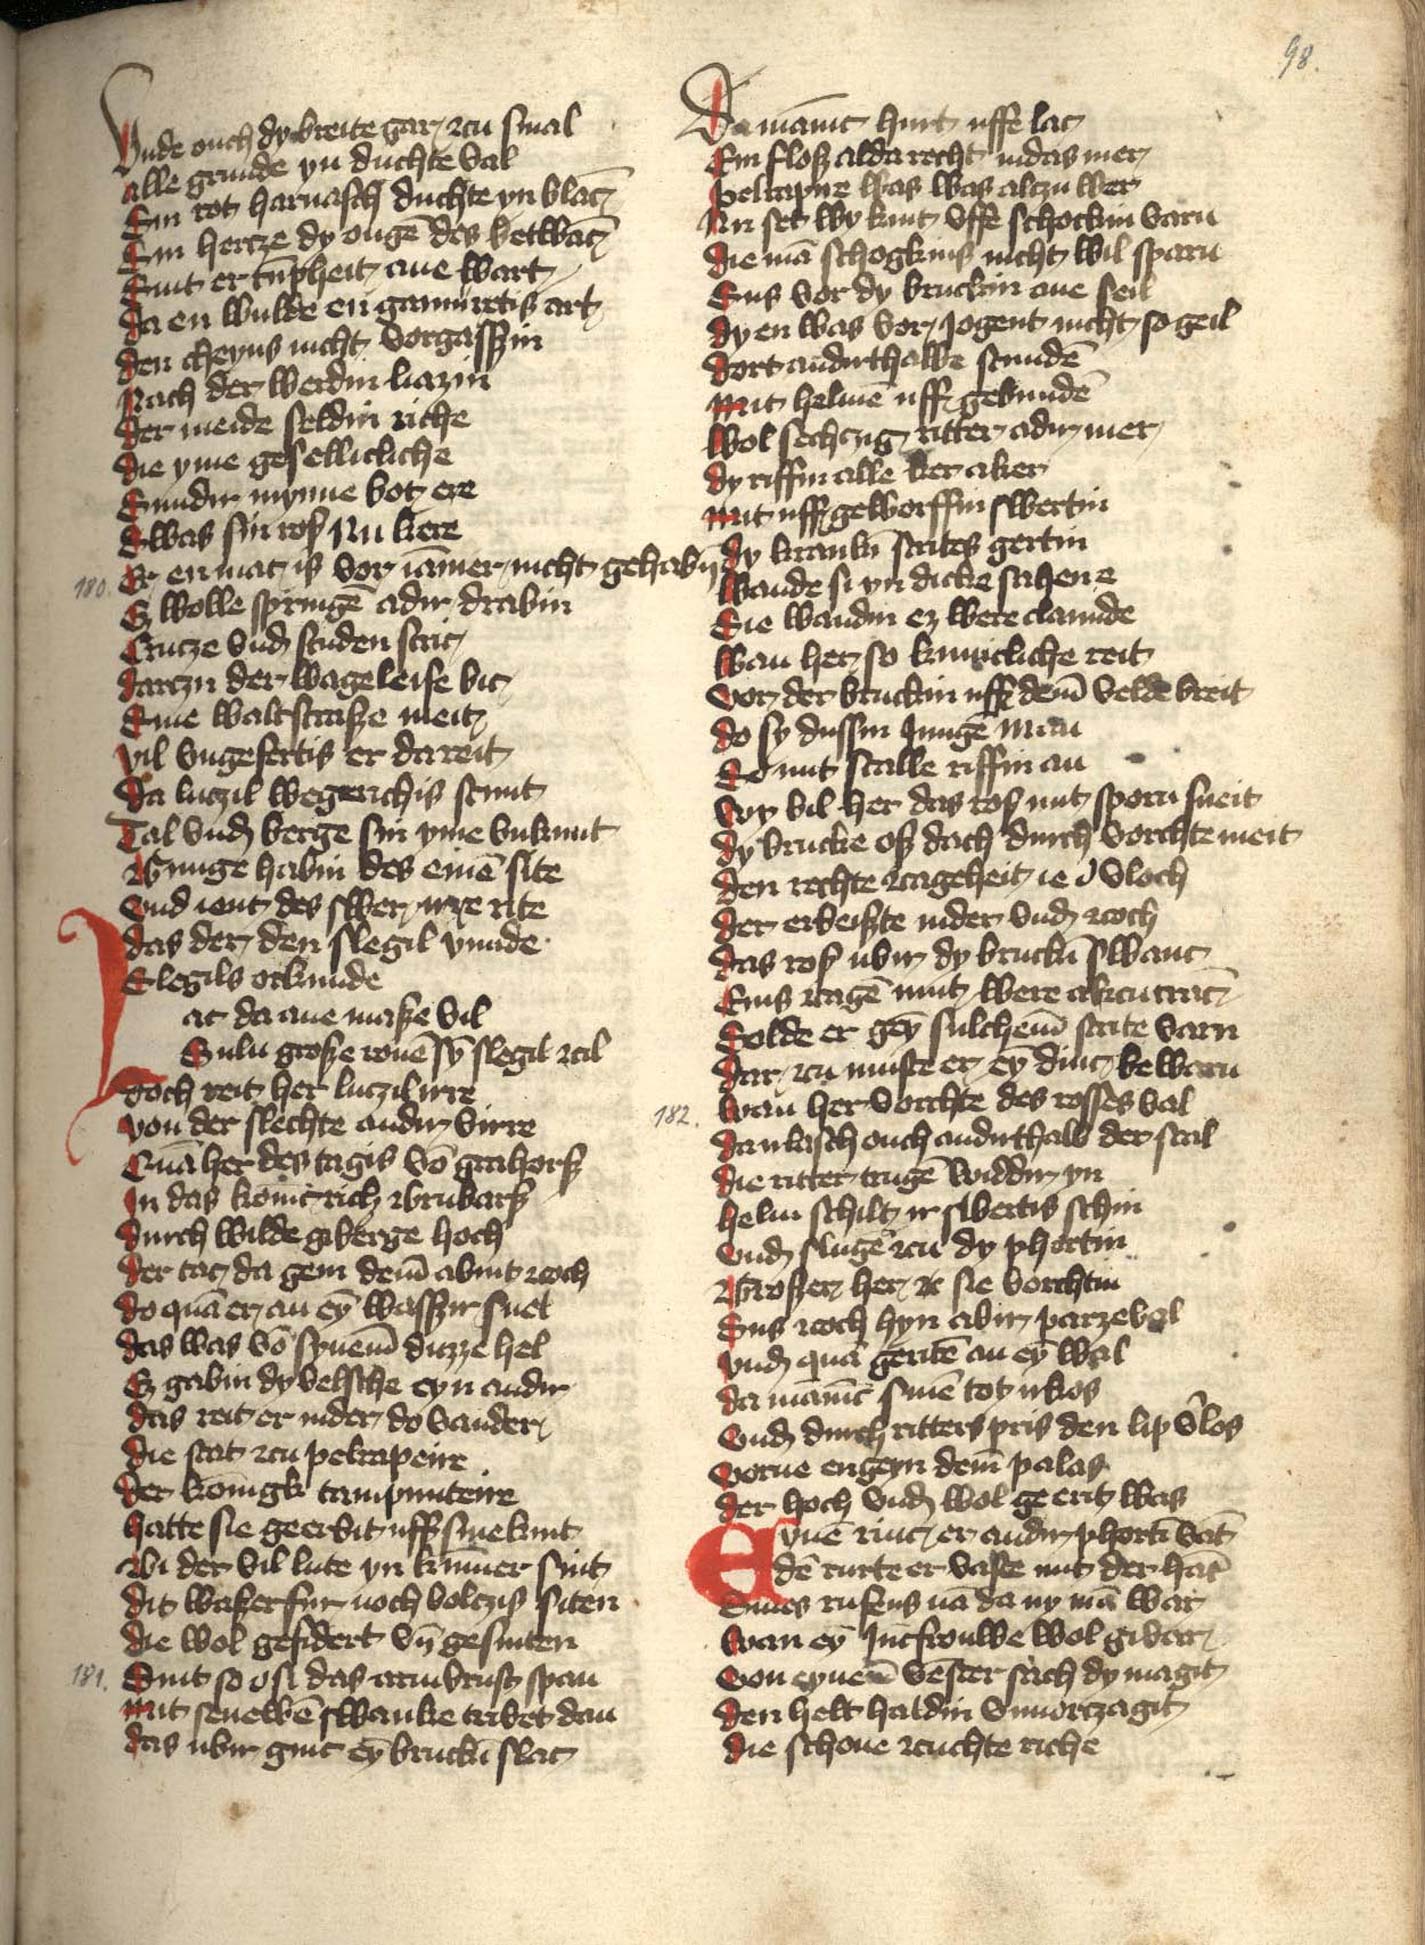 98.
Vnde ouch dy breite gar zcu smal
alle grunde yn duchte val
Sin rot harnasch duchte yn blāc
Sin hercze dy ougē des betwāc
Sint er tūpheit ane wart
da en wulde en gamuretis art
den cheyns nicht vorgasszin
Nach der werdin liazin
der meide seldin riche
die yme gesellicliche
Sundir mynne bot ere
Swas sin ros Nu kere
180. Er en mac is vor iāmer nicht gehabī
Ez wolle springē adir drabin
Crucze vnd studen stric
darczu der wageleise bic
Sine waltstrasze meit
vil vngefertis er da reit
da luczil wegerichis stunt
Tal vnd berge sin yme vnkunt
Genuge habin des einē site
vnd ient des swer irre rite
das der den slegil vunde
Slegils orkunde
Lac da ane masze vil
Suln grosze ronē sȳ slegil zcil
doch reit her luczil irre
von der slechte andir virre
Quā her des tagis vō grahorsz
In das kōnicrich brubarsz
durch wilde giberge hoch
der tac da gein dem̄ abint zcoch
do quā er an eȳ waszir snel
das was vō synem̄ duzze hel
Ez gabin dy velsche eyn andir
das reit er nider do vander
die stat zcu pelrapeire
der kōnigk tampunteire
hatte sie geerbit uff sine kint
bi der vil lute yn kūmer sint
dit waszer fur noch bolczis siten
die wol gefidert vn̄ gesniten
181. Sint so osi das armbrust span
Mit senewē swanke tribet dan
das ubir ginc eȳ bruckē slac
Da māinc hurt uffe lac
Ein flosz alda recht indas mer
pelrapire was was alczu wer
Nu set wy kint vffe schockin varn
die mā schogkins nicht wil sparn
Sus vor dy bruckin ane seil
dy en was vor Jogent nicht so geil
dort andirthalbe stundē
Mit helmē uff gebundē
Wol sechczig ritter adir mer
dy riffin alle ker aker
Mit uff geworffin swertin
dy krankē strites gertin
Wande si yn dicke sahen e
Sie wandin ez were clamide
Wan her so kunicliche reit
vor der bruckin uff dem̄ velde breit
do sy dussin Jungē man
So mit scalle riffin an
wy vil her das ros mit sporn sneit
dy brucke osz dach durch vorchte meit
den rechte zcageheit ie v̄loch
der erbeiszte nider vnd zcoch
das ros ubir dy bruckē swanc
Eins zcagē mut were alczu cranc
Solde er geȳ sulchem̄ strite varn
dar zcu muste er eȳ dinc bewarn
182. Wan her vorchte des rosses val
da irlasch ouch andirthalb der scal
die ritter trugē widdir yn
helm schilt ir swertis schin
vnd slugē zcu dy phortin
Groszer her sie vorchtin
Sus zcoch hyn abir parzeval
vnd quā geritē an eȳ wal
da māinc sinē tot irkos
vnd durch ritters pris den lip v̄los
vorne engeyn dem̄ palas
der hoch vnd wol geerit was
Eynē rinc er andir phortē vāt
dē rurte er vaste mit der hāt
Sines rufens nā da ny mā war
Wan eȳ Jūcfrouwe wol givar
von eynem̄ vēster sach dy magit
den helt haldin vnuorczagit
die schone zcuchte riche